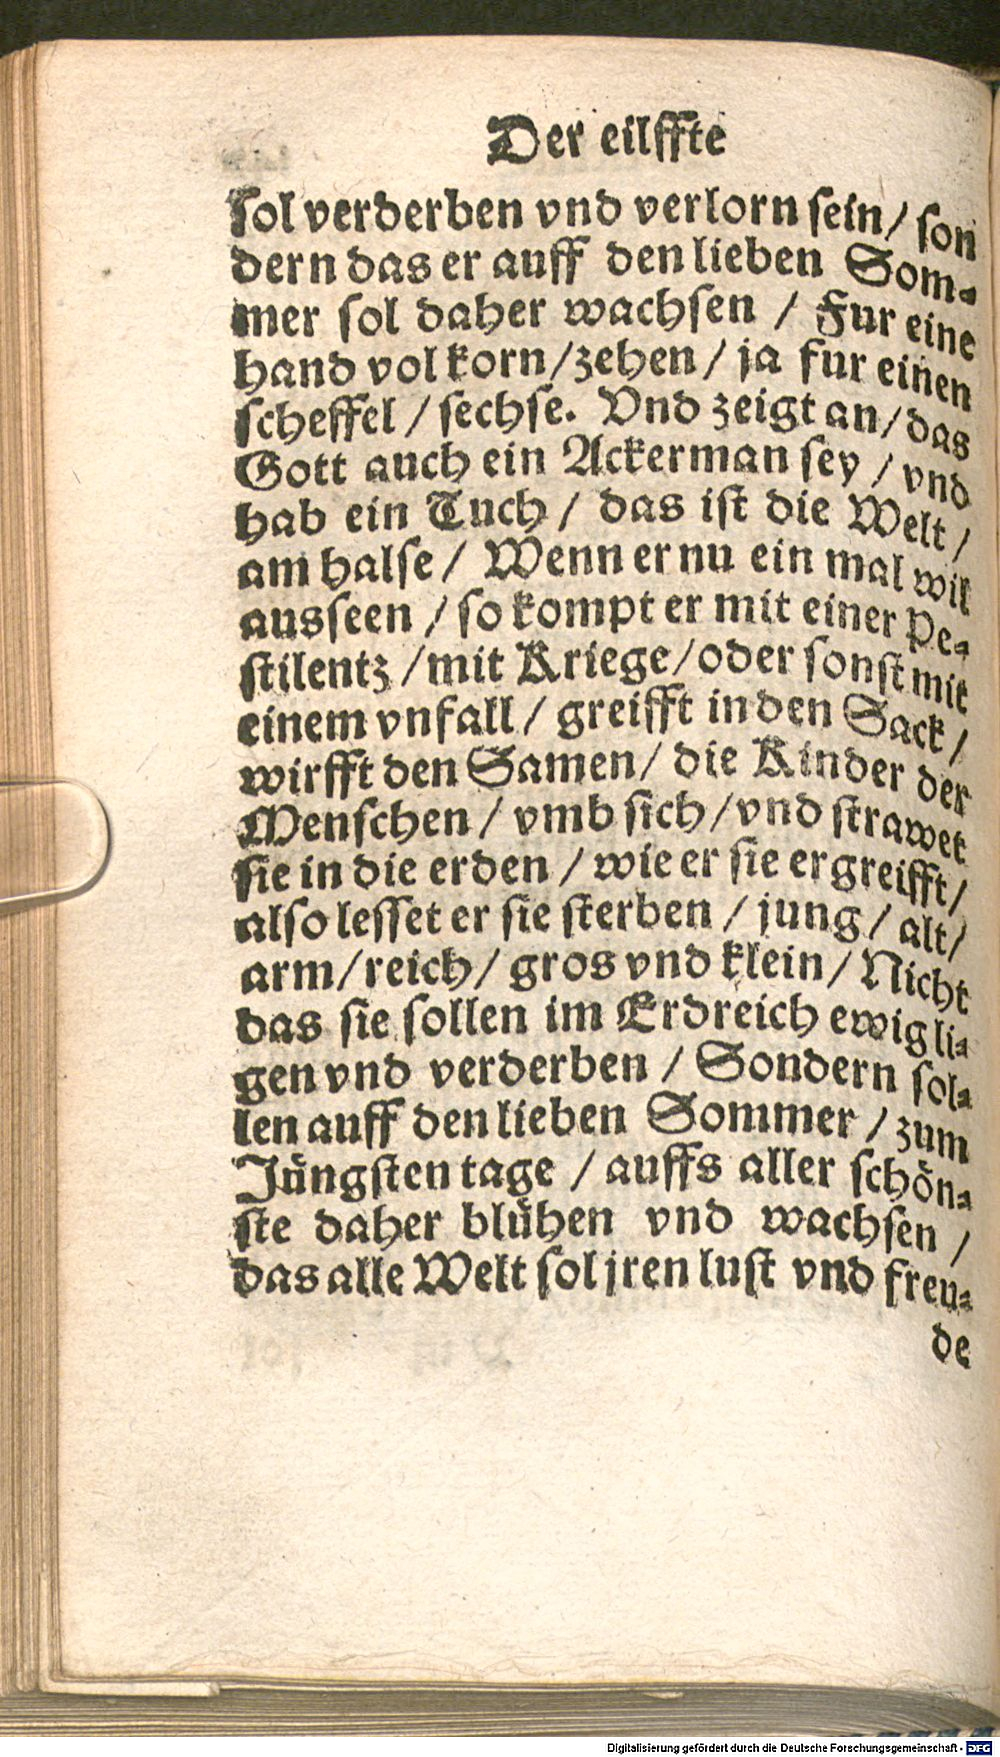 Der eilffte
sol verderben vnd verlorn sein/ son
dern das er auff den lieben Som⸗
mer sol daher wachsen / Fur eine
hand vol korn/zehen/ ja fur einen
scheffel / sechse. Vnd zeigt an/ das
Gott auch ein Ackerman sey / vnd
hab ein Tuch / das ist die Welt /
am halse / Wenn er nu ein mal wil
ausseen / so kompt er mit einer Pe⸗
stilentz /mit Kriege/oder sonst mit
einem vnfall / greifft in den Sack /
wirfft den Samen/ die Kinder der
Menschen / vmb sich /vnd strawet
sie in die erden / wie er sie ergreifft/
also lesset er sie sterben / jung/ alt/
arm/reich/ gros vnd klein/ Nicht
das sie sollen im Erdreich ewig li⸗
gen vnd verderben / Sondern sol⸗
len auff den lieben Sommer / zum
Jüngsten tage / auffs aller schön⸗
ste daher blühen vnd wachsen /
das alle Welt sol jren lust vnd freu⸗
de
Digitalisierung gefördert durch die Deutsche Forschungsgemeinschaft - DFG